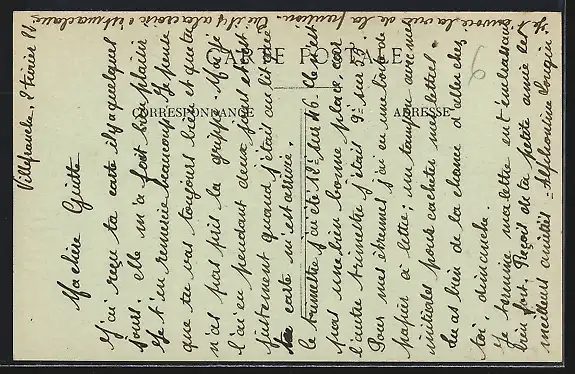 CARTE POSTALE
CORRESPONDANCE
ADRESSE
Villefranche, 2 Février
Ma chère Guitte
J'ai reçu ta carte il y a quelques
jours, elle m'a fort bien plaisir
Je t'en remercie beaucoup. Je pense
que tu vas toujours bien et que tu
n'as pas pris la grippe. Moi je
l'ai eu pendant deux jours c'est
justement quand j'étais au lit que
ta carte m'est arrivée.
Ce trimestre j'ai été 12e sur 46. Ce n'est
pas une bien bonne place, car
l'autre trimestre j'étais 9e sur 52
Pour mes étrennes j'ai eu une boîte de
papier à lettre, un tampon avec mes
initiales pour cacheter mes lettres.
Tu as bien de la chance d'aller chez
toi, dimanche.
Je termine ma lettre en t'embrassant
bien fort. Reçois de ta petite amie les
meilleurs amitiés - Alphonsine
Je t'envoie la vue de la pension. Où il y a la croix c'est ma classe.